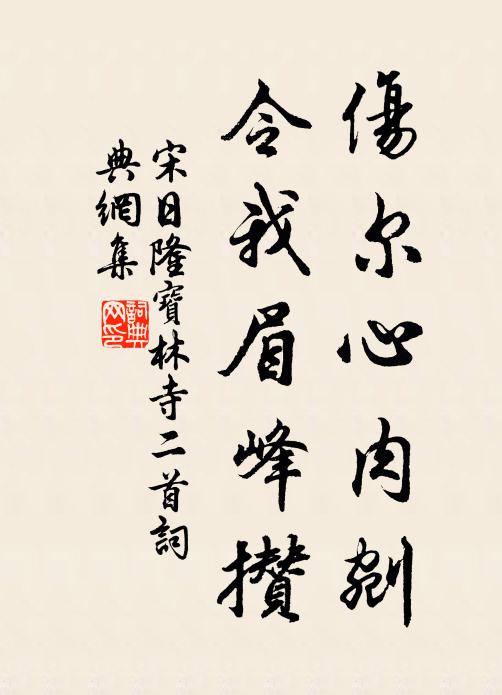 傷尔心肉剜
令我眉峰攅
宋日隆寶林寺二首詞
典網集
詞典網印